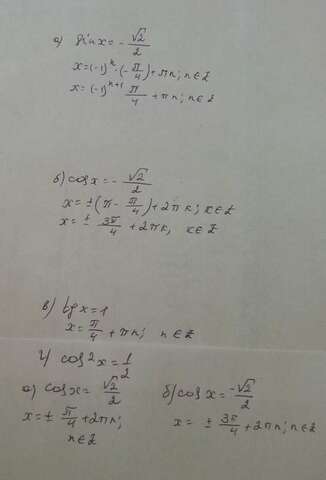 а) sin x = -√2/2
x = (-1)ⁿ·(-π/4) + πn; n∈Z
x = (-1)ⁿ⁺¹ π/4 + πn; n∈Z
б) cos x = -√2/2
x = ±(π - π/4) + 2πк; к∈Z
x = ± 3π/4 + 2πк, к∈Z
в) tg x = 1
x = π/4 + πn; n∈Z
г) cos²x = 1/2
а) cos x = √2/2
x = ± π/4 + 2πn;
n∈Z
б) cos x = -√2/2
x = ± 3π/4 + 2πn; n∈Z